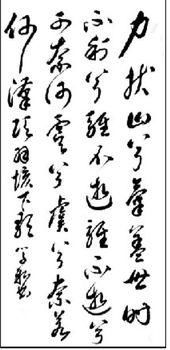 力拔山兮氣蓋世時
不利兮騅不逝騅不逝兮
可奈何虞兮虞兮奈若
何漢項羽垓下歌